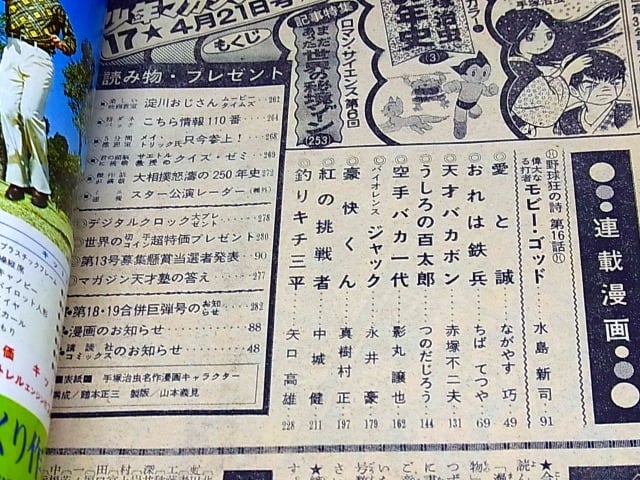 少年マガジン
17★4月21日号
もくじ
記事特集
ロマン・サイエンス第6回
まだあった世界の秘境ゾーン
(253)
手塚治虫
少年史
(3)
手塚治虫
読み物・プレゼント
淀川おじさん ムービータイムズ…262
こちら情報110番…264
メイ・トリック氏 只今参上!…268
クイズ・ゼミ…269
大相撲怒濤の250年史…272
スター公演レーダー(欄外)
◎デジタルクロック大プレゼント…278
◎世界の切手コイン超特価プレゼント280
◎第13号募集懸賞当選者発表…90
◎マガジン天才塾の答え…277
●第18・19合併巨弾号のお知らせ…282
●漫画のお知らせ…88
●講談社コミックスのお知らせ…48
■表紙■ 手塚治虫名作漫画キャラクター
構成/鏑本正三 製版/山本義見
●連載漫画●
野球狂の詩 第16話
偉大なる打者 モビー・ゴッド 水島新司 91
◎愛と誠 ながやす巧 49
◎おれは鉄兵 ちばてつや 69
◎天才バカボン 赤塚不二夫 131
◎うしろの百太郎 つのだじろう 144
◎空手バカ一代 影丸譲也 162
◎バイオレンスジャック 永井豪 179
◎豪快くん 真樹村正 197
◎紅の挑戦者 中城健 211
◎釣りキチ三平 矢口高雄 228